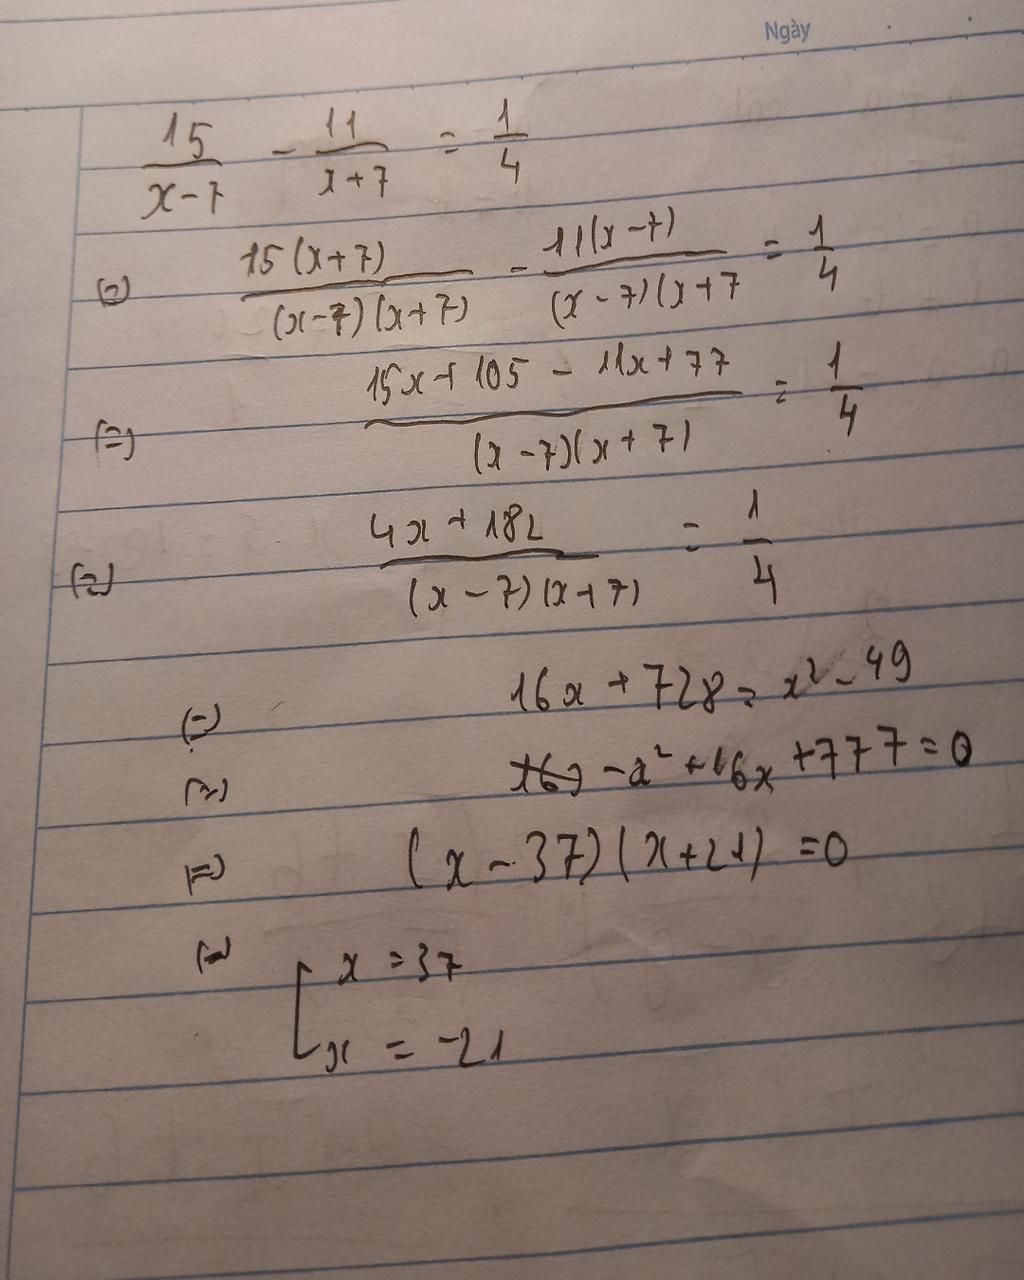 Ngày
15/(x-7) - 11/(x+7) = 1/4
(=) 15(x+7)/((x-7)(x+7)) - 11(x-7)/((x-7)(x+7) = 1/4
(=) (15x+105-11x+77)/((x-7)(x+7)) = 1/4
(=) (4x+182)/((x-7)(x+7)) = 1/4
(=) 16x+728=x²-49
(=) -x²+16x+777=0
(=) (x-37)(x+21)=0
(=) [x=37
x=-21